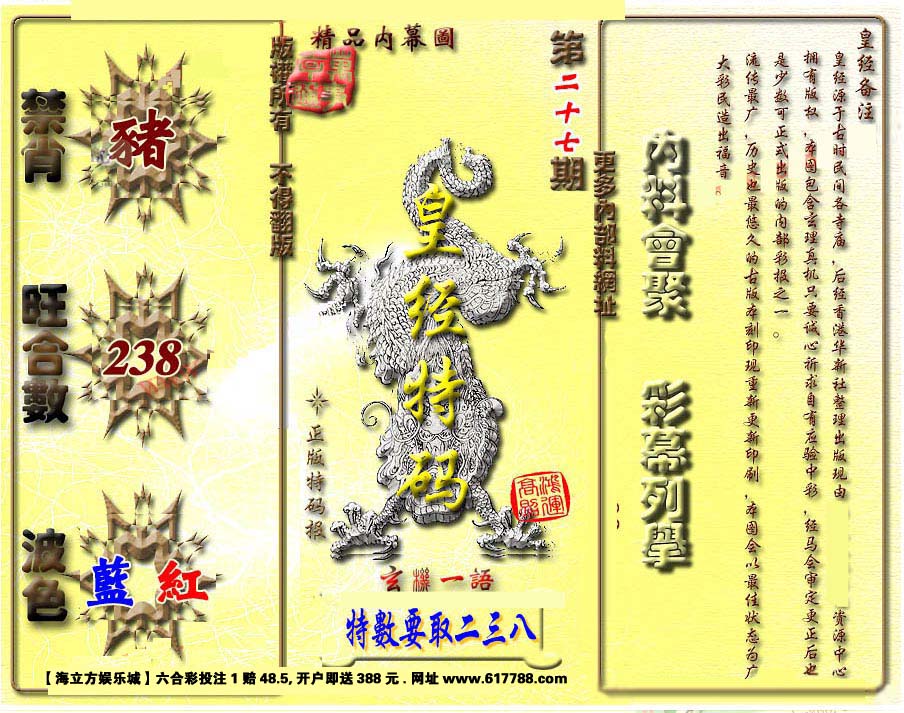 皇经备注
皇经源于古时民间各寺庙，后经香港华新社整理出版现由
资源中心
拥有版权，本图包含玄理真机只要诚心祈求自有应验中彩，经马会审定更正后也
是少数可正式出版的内部彩报之一。
流传最广，历史也最悠久的古版本刻印现重新更新印刷，本图会以最佳状态为广
大彩民造出福音
内料會聚
彩幕列舉
更多內部料網址
第二十七期
精品内幕圖
版權所有 不得翻版
皇经特码
正版特码报
鸿運高照
玄機一語
特數要取二三八
禁肖
豬
旺合數
238
波色
藍 紅
【海立方娱乐城】六合彩投注1赔48.5,开户即送388元.网址 www.617788.com